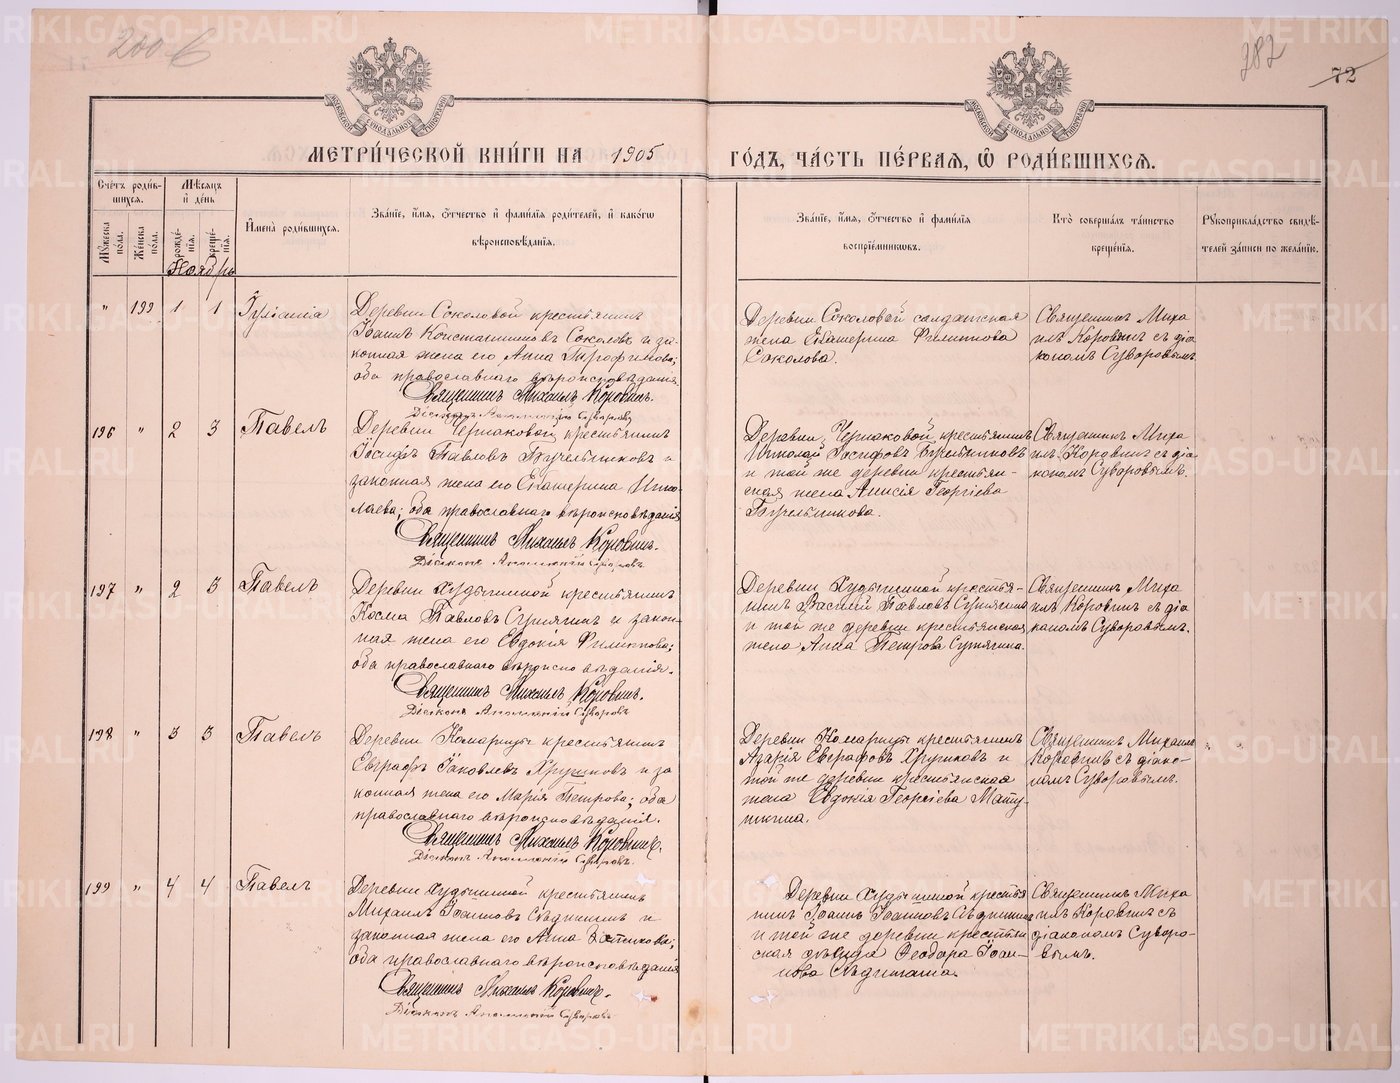 200 б
282
72
МОСКОВСКОЙ СѴНОДАЛЬНОЙ ТИПОГРАФІИ
МОСКОВСКОЙ СѴНОДАЛЬНОЙ ТИПОГРАФІИ
МЕТРИ́ЧЕСКОЙ КНИ́ГИ НА 1905 ГО́ДЪ, ЧА́СТЬ ПЕ́РВАЯ, Ѡ҆ РОДИ́ВШИХСѦ.
Сче́тъ роди́вшихсѧ.
Мѣ́сѧцъ и҆ де́нь
Мꙋ́жеска по́ла.
Же́нска по́ла.
рожде́нїѧ.
креще́нїѧ.
И҆мена̀ роди́вшихсѧ.
Зва́нїе, и҆́мѧ, ѻ҆́тчество и҆ фами́лїѧ роди́телей, и҆ како́гѡ
вѣроисповѣ́данїѧ.
Зва́нїе, и҆́мѧ, ѻ҆́тчество и҆ фами́лїѧ
воспрїе́мникѡвъ.
Кто̀ соверша́лъ та́инство
креще́нїѧ.
Рꙋкоприкла́дство свидѣ́телей за́писи по жела́нїю.
Ноябрь
" 199 1 1 Іуліанія
Деревни Соколовой крестьянинъ
Іоаннъ Константиновъ Соколовъ и законная жена его Анна Трофимова;
оба православнаго вѣроисповѣданія.
Священникъ Михаилъ Коровинъ.
Діаконъ Аполлоній Суворовъ
Деревни Соколовой солдатская
жена Екатерина Филиппова
Соколова.
Священникъ Михаилъ Коровинъ съ діакономъ Суворовымъ.
196 " 2 3 Павелъ
Деревни Черпаковой крестьянинъ
Іосифъ Павловъ и
законная жена его Екатерина Николаева; оба православнаго вѣроисповѣданія
Священникъ Михаилъ Коровинъ.
Діаконъ Аполлоній Суворовъ
Деревни Черпаковой крестьянинъ
Николай Іосифовъ
и той же деревни крестьянская жена Анисія Георгіева
Священникъ Михаилъ Коровинъ съ діакономъ Суворовымъ.
197 " 2 3 Павелъ
Деревни Худышиной крестьянинъ
Косма Павловъ Сутягинъ и законная жена его Евдокія Филиппова;
оба православнаго вѣроисповѣданія.
Священникъ Михаилъ Коровинъ.
Діаконъ Аполлоній Суворовъ
Деревни Худышиной крестьянинъ Василій Павловъ Сутягинъ
и той же деревни крестьянская
жена Анна Петрова Сутягина.
Священникъ Михаилъ Коровинъ съ діакономъ Суворовымъ.
198 " 3 3 Павелъ
Деревни Комарицы крестьянинъ
Евграфъ Іаковлевъ Хрушковъ и законная жена его Марія Петрова; оба
православнаго вѣроисповѣданія.
Священникъ Михаилъ Коровинъ.
Діаконъ Аполлоній Суворовъ.
Деревни Комарицы крестьянинъ
Азарія Евграфовъ Хрушковъ и
той же деревни крестьянская
жена Евдокія Георгіева
Священникъ Михаилъ
Коровинъ съ діакономъ Суворовымъ.
199 " 4 4 Павелъ
Деревни Худышиной крестьянинъ
Михаилъ Іоанновъ и
законная жена его Анна
оба православнаго вѣроисповѣданія
Священникъ Михаилъ Коровинъ.
Діаконъ Аполлоній Суворовъ
Деревни Худышиной крестьянинъ Іоаннъ Іоанновъ
и той же деревни крестьянская дѣвица Феодора Іоаннова
Священникъ Михаилъ Коровинъ съ
діакономъ Суворовымъ.
METRIKI.GASO-URAL.RU